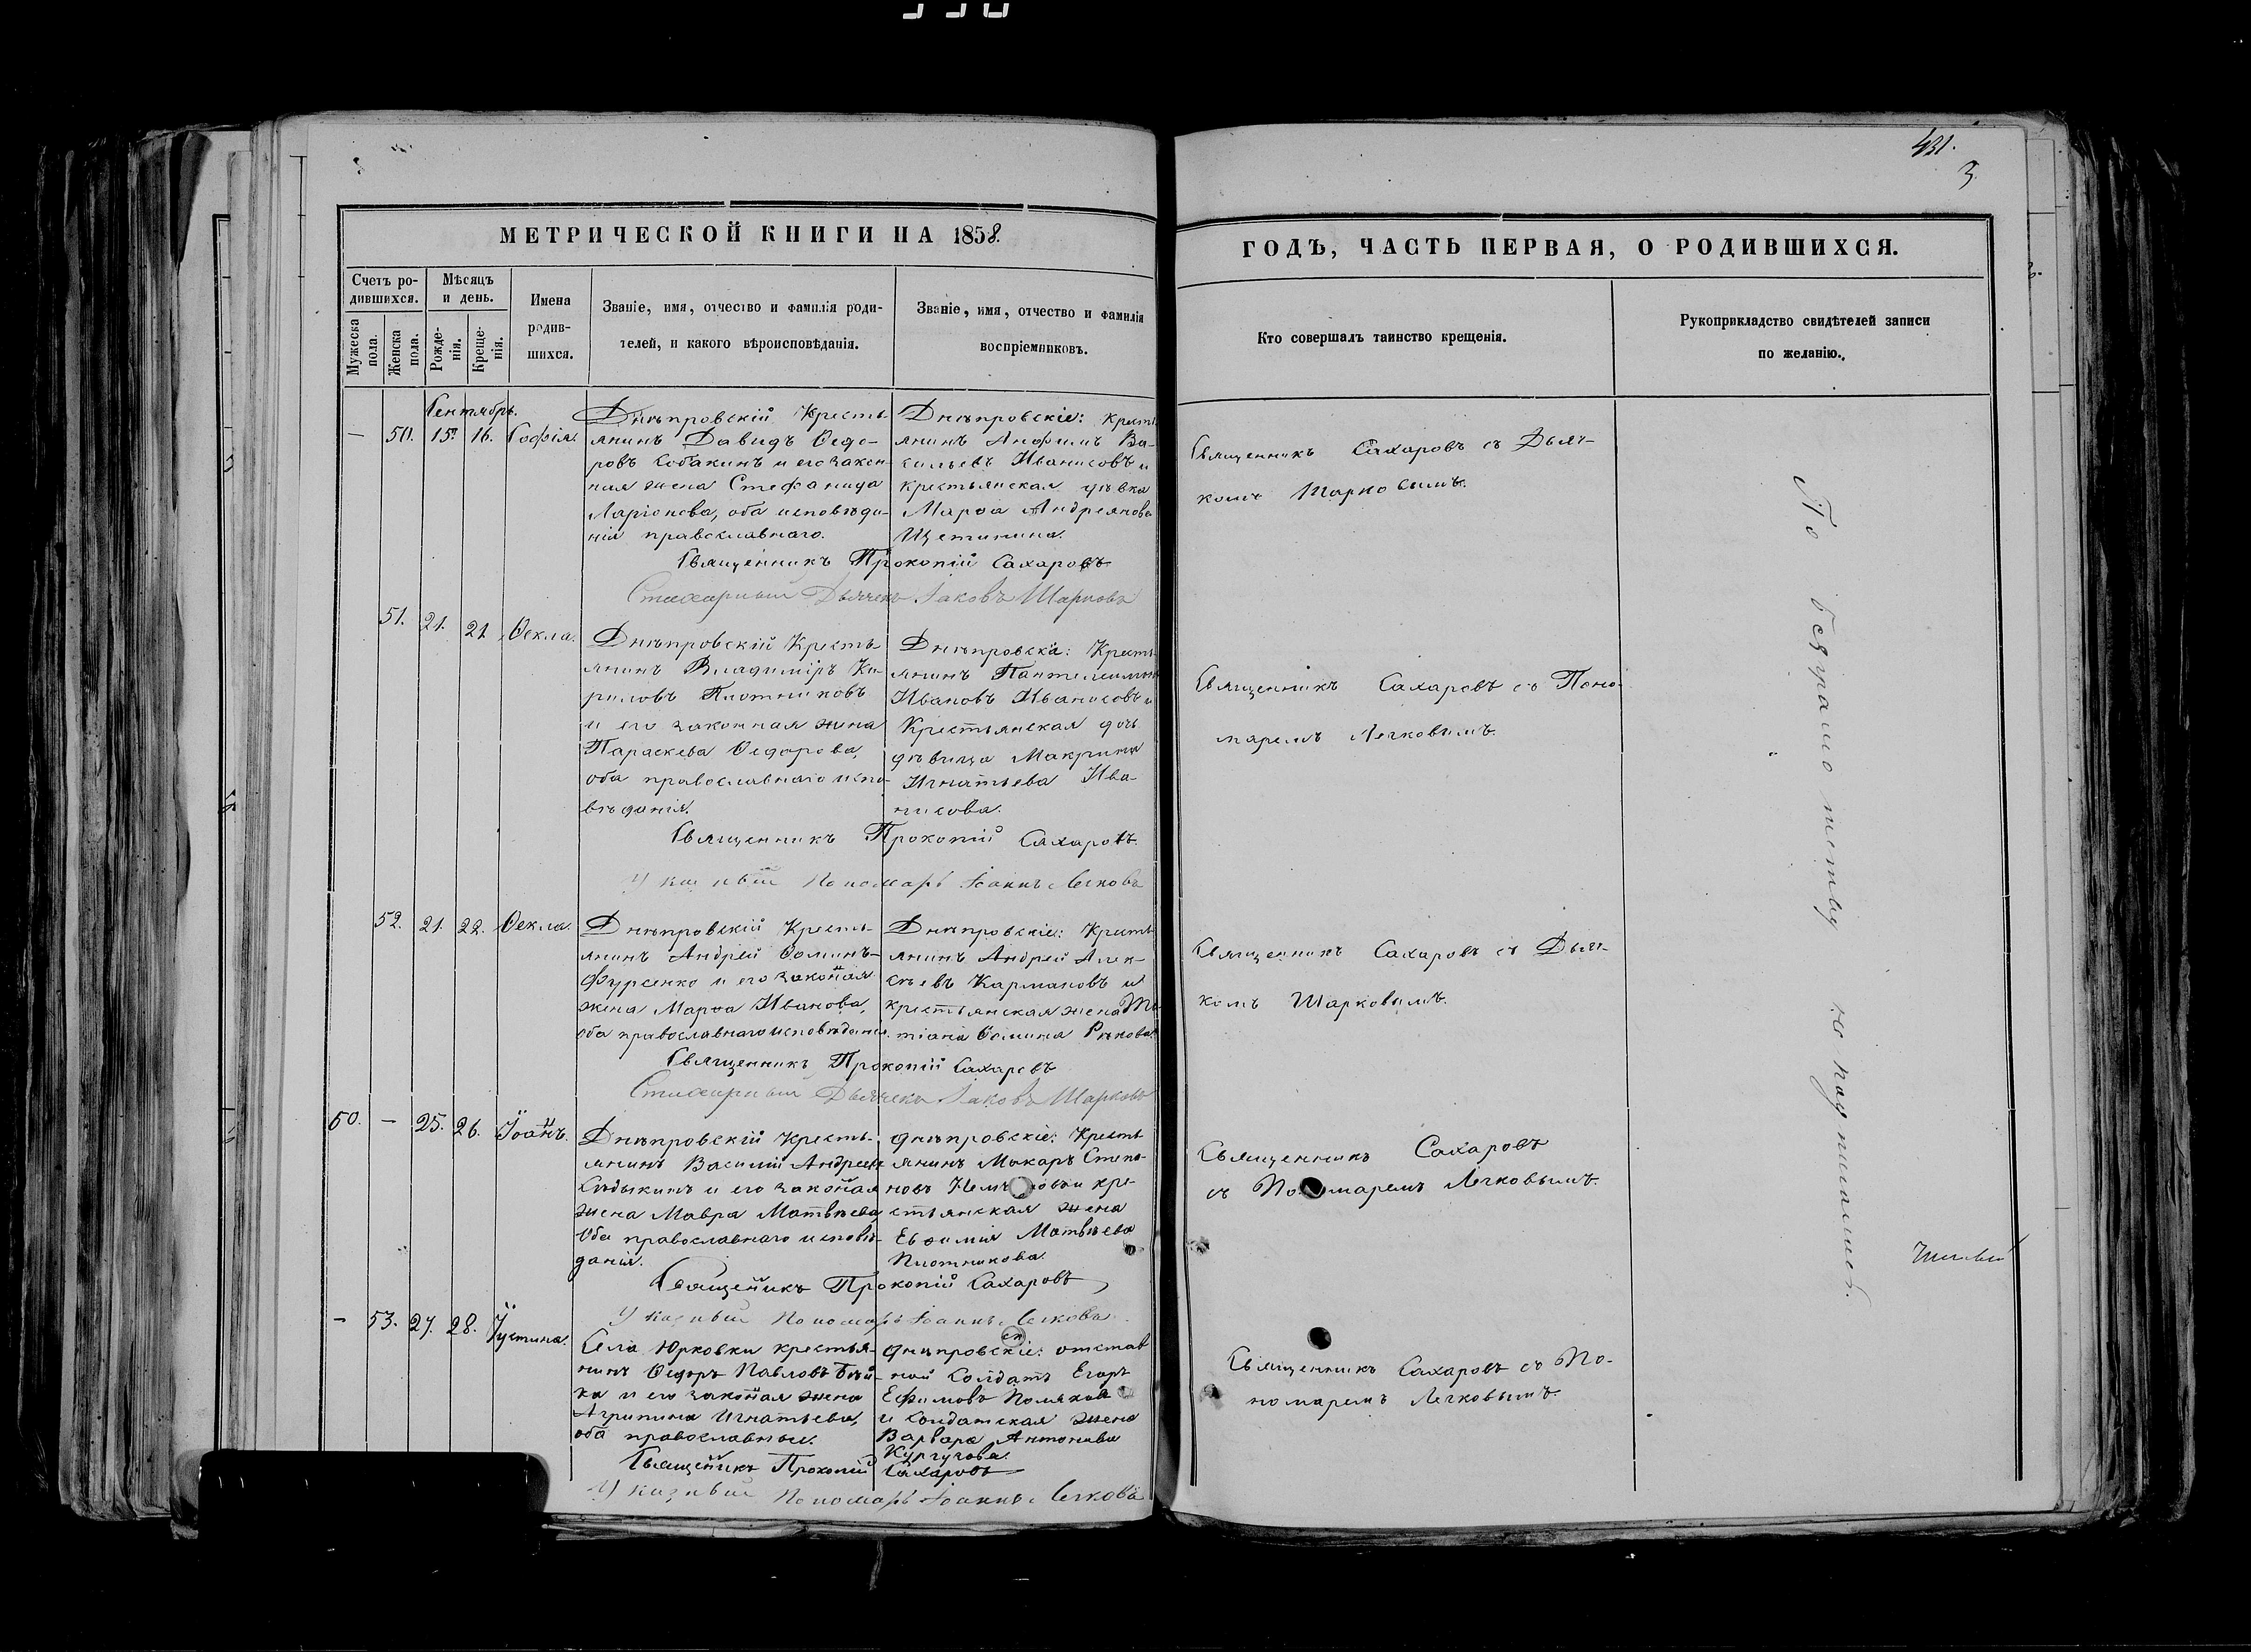 431.
3.
МЕТРИЧЕСКОЙ КНИГИ НА 1858.
Счетъ ро-
дившихся.
Мужеска
пола.
Женска
пола.
Мѣсяцъ
и день.
Рожде-
нія.
Креще-
нія.
Имена
родив-
шихся.
Званіе, имя, отчество и фамилія роди-
телей, и какого вѣроисповѣданія.
Званіе, имя, отчество и фамилія
воспріемниковъ.
ГОДЪ, ЧАСТЬ ПЕРВАЯ, О РОДИВШИХСЯ.
Кто совершалъ таинство крещенія.
Рукоприкладство свидѣтелей записи
по желанію.
Сентябрь.
— 50. 15. 16. Софія.
Днѣпровскій Кресть-
янинъ Давидъ Ѳедо-
ровъ Собакинъ и его закон-
ная жена Стефанида
Ларіонова, оба исповѣда-
нія православнаго.
Днѣпровскіе: Кресть
янинъ Анфимъ Ва-
сильевъ Иванисовъ и
крестьянская дѣвка
Марѳа Андреянова
Щетинина.
Священникъ Сахаровъ съ Дьяч-
комъ Шарковымъ.
Священникъ Прокопій Сахаровъ
Стихарный Дьячекъ Іаковъ Шарковъ
51. 21. 21. Ѳекла.
Днѣпровскій Кресть
янинъ Владиміръ Ки-
риловъ Плотниковъ
и его законная жена
Параскева Ѳедорова,
оба православнаго испо-
вѣданія.
Днѣпровскіа: Кресть
янинъ Пантелеимонъ
Ивановъ Иванисовъ и
Крестьянская дочь
дѣвица Макрина
Игнатьева Ива-
нисова.
Священникъ Сахаровъ съ Поно-
маремъ Лечковымъ.
Священникъ Прокопій Сахаровъ.
Указный Пономарь Іоаннъ Лечковъ
52. 21. 22. Ѳекла.
Днѣпровскій Кресть-
янинъ Андрей Ѳоминъ
Фурсенко и его законая
жена Марѳа Иванова,
оба православнаго исповѣданія.
Днѣпровскіе: Кресть
янинъ Андрей Алек-
сѣевъ Кармановъ и
крестьянская жена Та-
тіана Ѳомина Рыкова.
Священникъ Сахаровъ съ Дьяч-
комъ Шарковымъ.
Священникъ Прокопій Сахаровъ
Стихарный Дьячекъ Іаковъ Шарковъ
50. — 25. 26. Іоанъ.
Днѣпровскій Кресть-
янинъ Василій Андреевъ
и его законая
жена Мавра Матвѣева,
Оба православнаго исповѣ-
данія.
днѣпровскіе: Кресть
янинъ Макаръ Степа-
новъ и кре-
стьянская жена
Евѳимія Матвѣева
Плотникова.
Священникъ Сахаровъ
съ Пономаремъ Лечковымъ.
Священикъ Прокопій Сахаровъ
Указный Пономарь Іоаннъ Лечковъ
— 53. 27. 28. Іустина.
Села Юрковки крестья-
нинъ Ѳедоръ Павловъ
и его законая жена
Агрипина Игнатьева,
оба православные.
днѣпровскіе: отстав
ной Солдатъ Егоръ
Ефимовъ Поляковъ
и Солдатская жена
Варвара Антонова
Кургузова.
Священникъ Сахаровъ съ По-
номаремъ Лечковымъ.
Священикъ Прокопій Сахаровъ
Указный Пономарь Іоаннъ Лечковъ
По